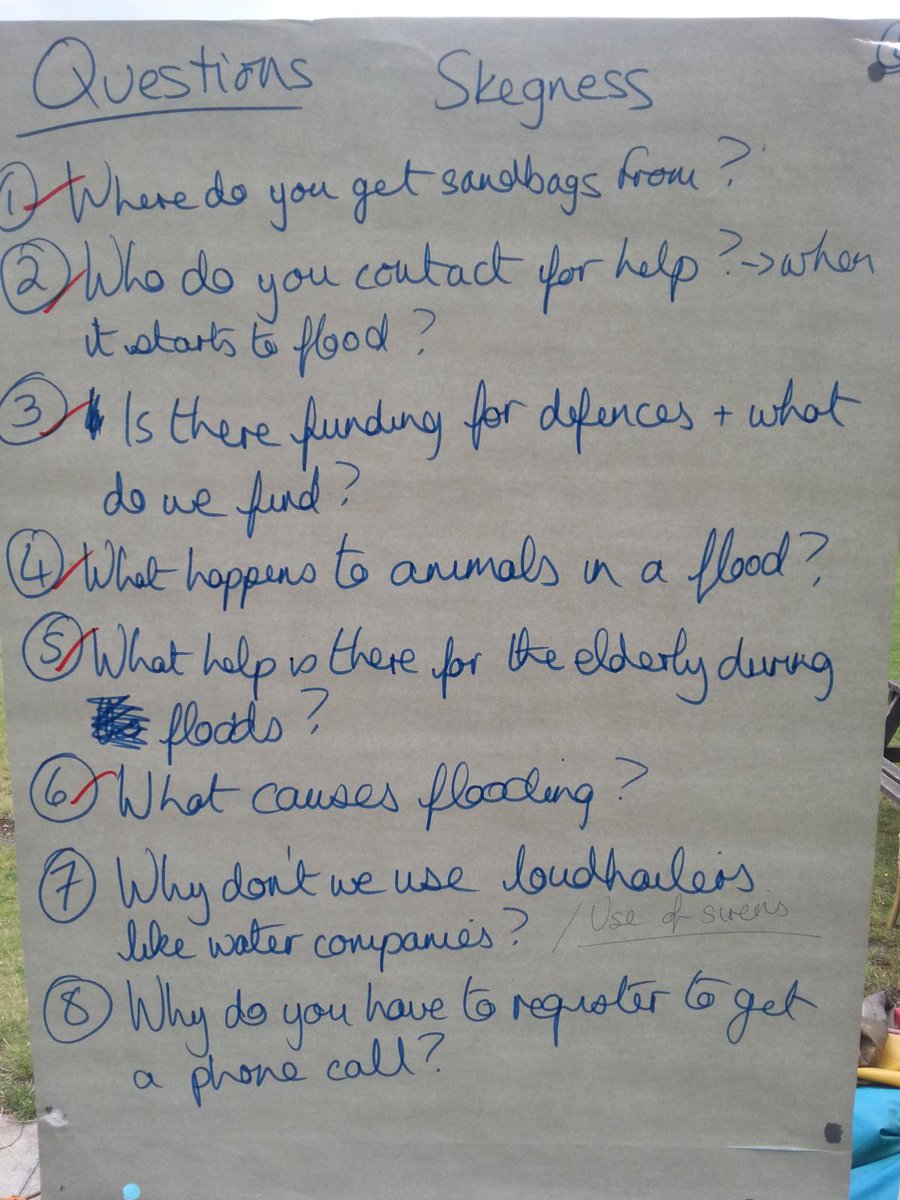 Questions Skegness
① Where do you get sandbags from?
② Who do you contact for help? → when
it starts to flood?
③ Is there funding for defences + what
do we fund?
④ What happens to animals in a flood?
⑤ What help is there for the elderly during
floods?
⑥ What causes flooding?
⑦ Why don't we use loudhailers
like water companies? / Use of sirens
⑧ Why do you have to register to get
a phone call?